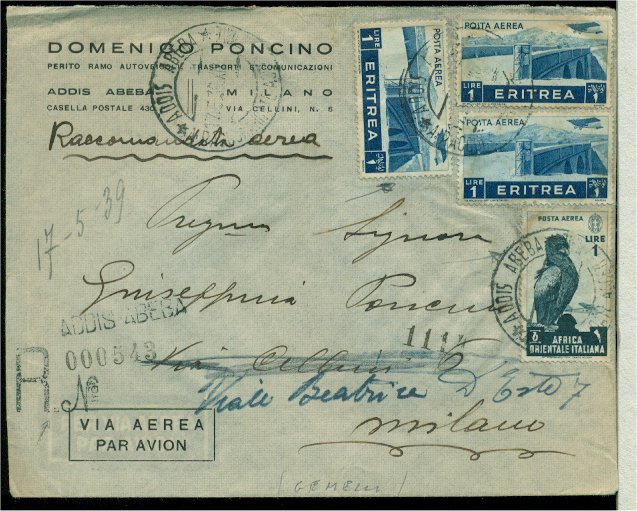 DOMENICO PONCINO
PERITO RAMO AUTOVEICOLI TRASPORTI E COMUNICAZIONI
ADDIS ABEBA MILANO
CASELLA POSTALE 430 VIA CELLINI, N. 6
Raccomandata aerea
POSTA AEREA
LIRE 1
ERITREA
POSTA AEREA
LIRE 1
ERITREA
POSTA AEREA
LIRE 1
ERITREA
ADDIS ABEBA
17-5-39
Signora
POSTA AEREA
LIRE 1
AFRICA
ORIENTALE ITALIANA
ADDIS ABEBA
Giuseppina Poncino
ADDIS ABEBA
000543
R
No
Via Cellini 6
Viale Beatrice D'Este 7
Milano
VIA AEREA
PAR AVION
(GEMELLI)